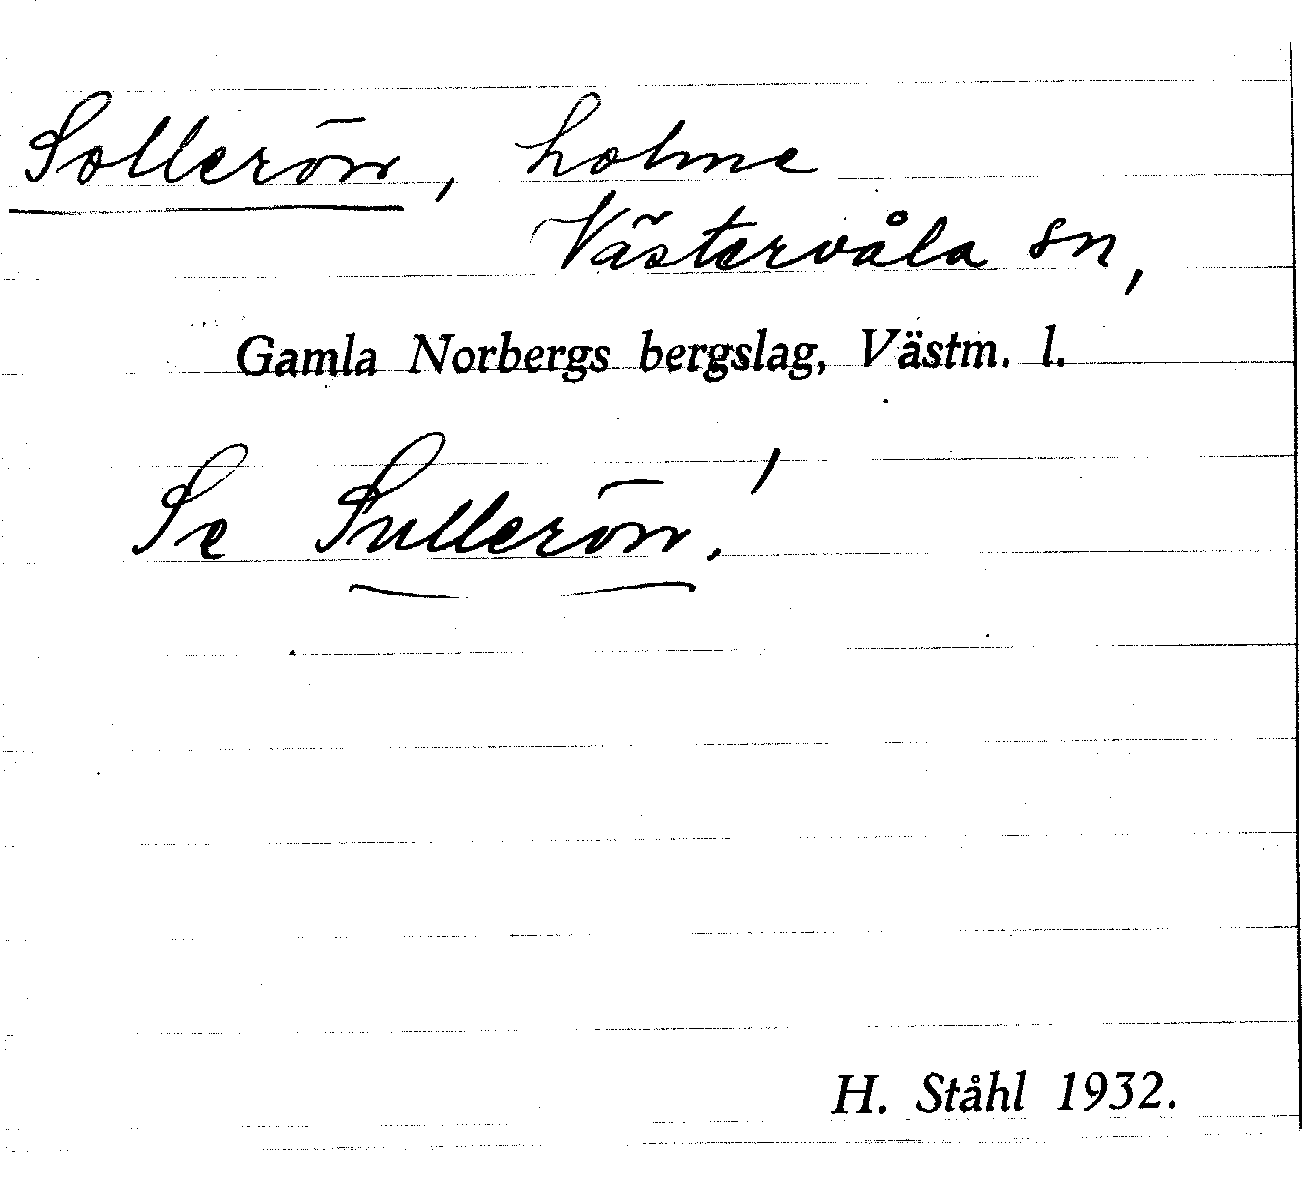 Sollerön, holme
Västervåla sn,
Gamla Norbergs bergslag, Västm. l.
Se Sullerön!
H. Ståhl 1932.